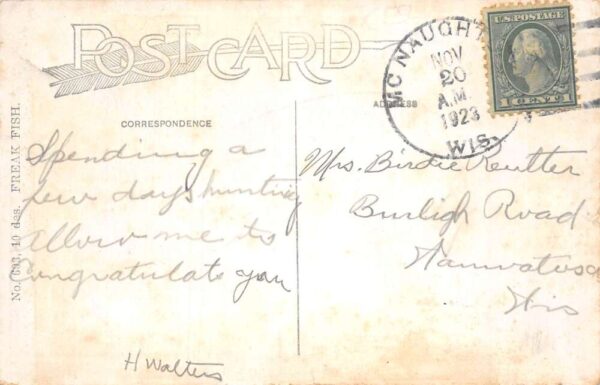 POST CARD
MC NAUGHT
NOV
20
A.M.
1923
WIS.
U.S. POSTAGE
1 CENT 1
CORRESPONDENCE
ADDRESS
No. 693, 10 des. FREAK FISH.
Spending a
few days hunting
allow me to
Congratulate you
H Walters
Mrs. Birdie Reutter
Burligh Road
Wauwatosa
Wis